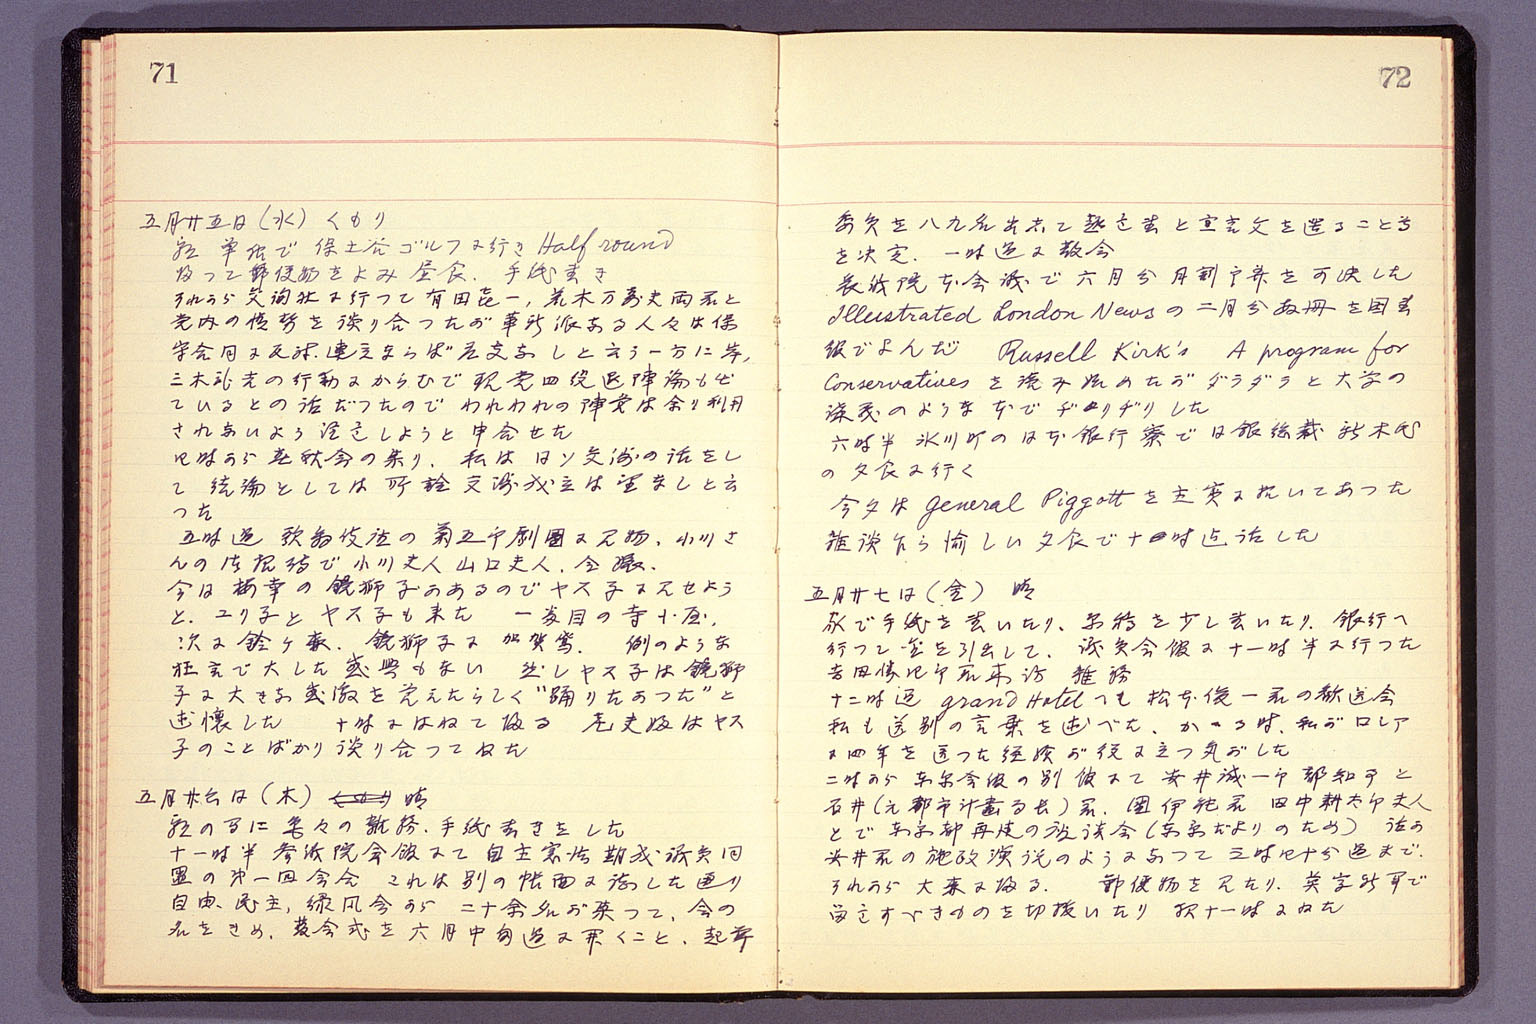 71
五月廿五日（水） くもり
朝 単独で 保土谷ゴルフに行き Half round
帰つて郵便物をよみ 昼食. 手紙書き
それから交詢社に行つて有田喜一, 荒木万寿夫両君と
党内の情勢を談り合つたが革新派なる人々は保
守合同に反対. 連立ならば 左支なしと云う一方に岸,
三木非主の行動にからむで 現党四役退陣論も出
ているとの話だつたので われわれの陣営は余り利用
されないよう 注意しようと申合せた
四時から春秋会の集り. 私は 日ソ交渉の話をし
て 結論としては 所詮 交渉成立は望なしと云
つた
五時過 歌舞伎座の 菊五郎劇団に見物. 小川さ
んの 招待で小川夫人 山口夫人. 会食.
今日 梅幸の 鏡獅子があるのでヤス子に見せよう
と. ユリ子と ヤス子も 来た 一番目の寺小屋.
次に鈴ヶ森. 鏡獅子に 加賀鳶. 例のような
狂言で大した感興もない 然しヤス子は鏡獅
子に大きな感激を 覚えたらしく "踊りたかつた" と
述懐した 十時にはねて帰る 老夫婦はヤス
子のことばかり 談り合つてねた
五月廿六日（木） 晴
朝の間に 色々の雑務. 手紙書きをした
十一時半 参議院会館にて 自主憲法期成議員同
盟の 第一回会合 これは別の帳面に誌した通り
自由. 民主, 緑風会から 二十余名が集つて, 会の
名をきめ. 発会式を 六月中旬過に開くこと. 起草
72
委員を八九名出して 趣意書と宣言文を造ること等
を決定. 一時過に散会
衆議院 本会議で 六月分 月割予算を可決した
Illustrated London Newsの 二月分 四冊を国書
館でよんだ Russell Kirk's A program for
Conservatives を読み始めたが ダラダラと大学の
講義のような 本で ヂリヂリした
六時半 氷川町の 日本銀行寮で 日銀総裁 新木氏
の夕食に行く
今夕は General Piggott を主賓に招いてあつた
雑談から 愉しい 夕食で 十時迄 話した
五月廿七日（金） 晴
家で手紙を書いたり、原稿を少し書いたり. 銀行へ
行つて金を引出して. 議員会館に 十一時半に行つた
吉田懐四郎君来訪 雑務
十二時過 grand Hotel でも 松本俊一君の歓送会
私も送別の言葉を述べた. かゝる時. 私がロシア
に四年を送つた経験が役に立つ気がした
二時から 東京会館の別館にて 安井誠一郎 都知事と
石井（元都市計画局長）君. 團伊能君 田中耕太郎夫人
とで 東京都再建の放談会（東京だよりのため） 話が
安井君の施政演説のようになつて 三時四十分過まで.
それから 大森に帰る. 郵便物を見たり. 英字新聞で
留意すべきものを切抜いたり 夜十一時にねた